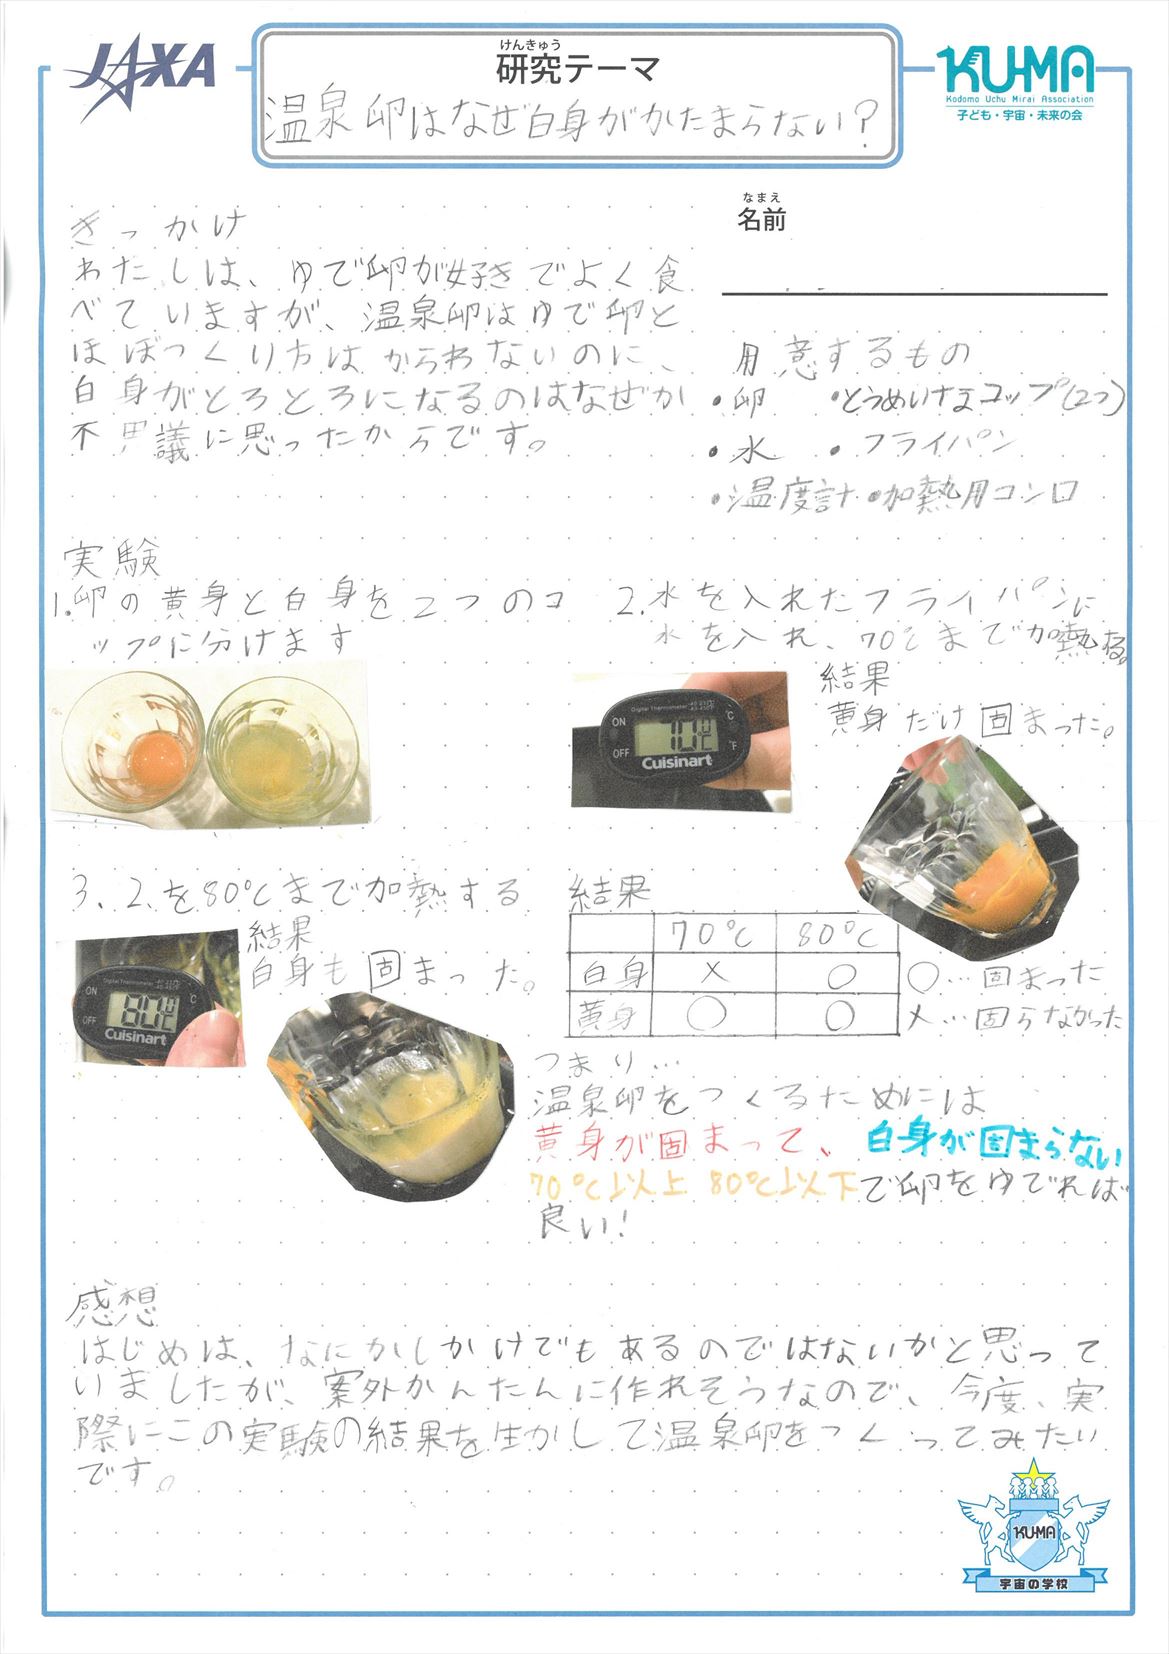 JAXA
けんきゅう
研究テーマ
温泉卵はなぜ白身がかたまらない?
KU-MA
Kodomo Uchu Mirai Association
子ども・宇宙・未来の会
なまえ
名前
きっかけ
わたしは、ゆで卵が好きでよく食
べていますが、温泉卵はゆで卵と
ほぼつくり方はかわらないのに、
白身がとろとろになるのはなぜか
不思議に思ったからです。
用意するもの
・卵 ・とうめいなコップ(2つ)
・水 ・フライパン
・温度計 ・加熱用コンロ
実験
1.卵の黄身と白身を2つのコ
ップに分けます
2.水を入れたフライパンに
水を入れ、70℃まで加熱する。
結果
黄身だけ固まった。
Digital Thermometer
ON
OFF
70
°C
°F
Cuisinart
3、2.を80℃まで加熱する
結果
白身も固まった。
Digital Thermometer
ON
OFF
80
°C
Cuisinart
結果
70℃ 80℃
白身 × ○
黄身 ○ ○
○…固まった
×…固らなかった
つまり…
温泉卵をつくるためには
黄身が固まって、白身が固まらない
70℃以上 80℃以下で卵をゆでれば
良い!
感想
はじめは、なにかしかけでもあるのではないかと思って
いましたが、案外かんたんに作れそうなので、今度、実
際にこの実験の結果を生かして温泉卵をつくってみたい
です。
KU-MA
宇宙の学校